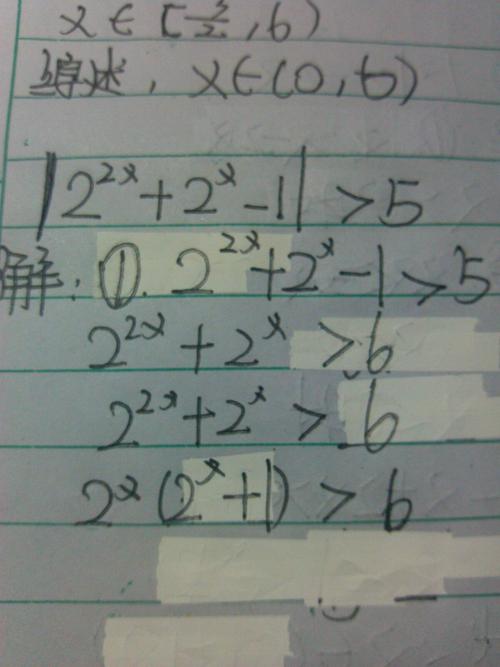 x∈[3/2,6)
综述，x∈(0,6)
|2^{2x}+2^x-1|>5
解：①. 2^{2x}+2^x-1>5
2^{2x}+2^x>6
2^{2x}+2^x>6
2^x(2^x+1)>6